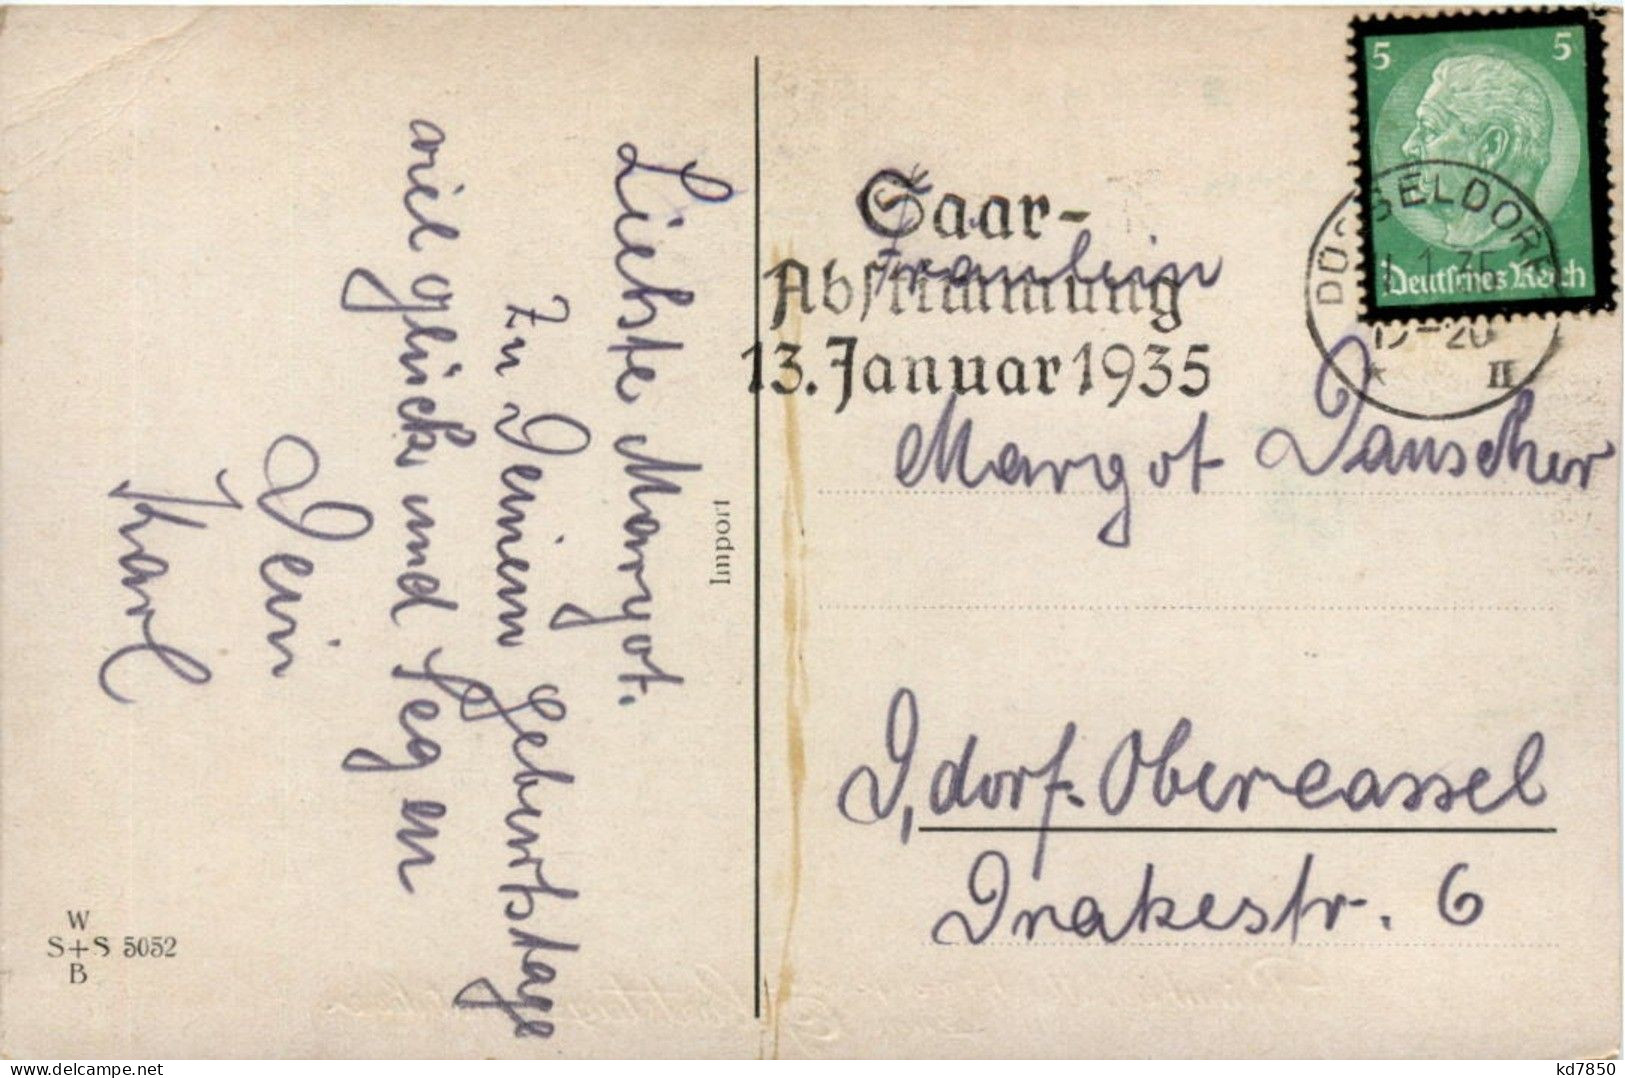 Liebste Margot.
Zu Deinem Geburtstage
viel glück und Segen
Dein
Karl
Import
W
S+S 5052
B
5 5
Deutsches Reich
DÜSSELDORF
1.35
19-20
* II
Saar-
Abstimmung
13. Januar 1935
Fräulein
Margot
D,dorf-Obercassel
Drakestr. 6
kd7850